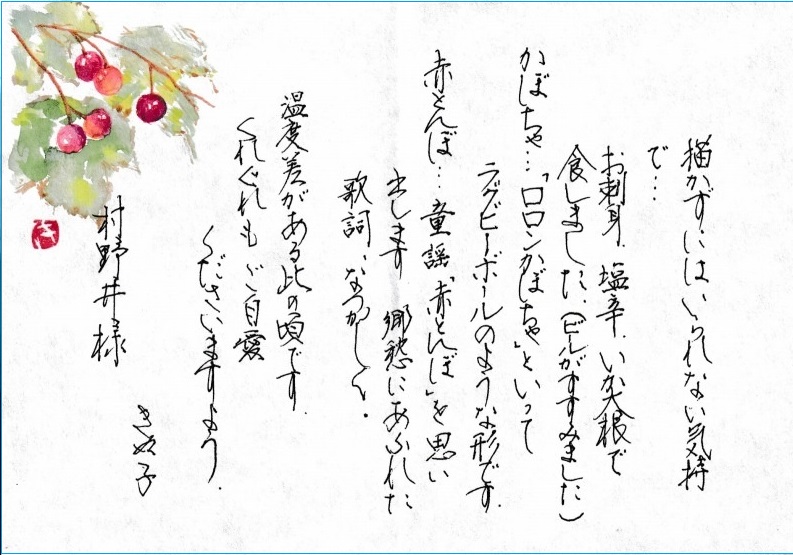 描かずにはいられない気持
で…
お刺身、塩辛、いか大根で
食しました。(ビールがすすみました)
かぼちゃ…「ロロンかぼちゃ」といって
ラグビーボールのような形です。
赤とんぼ…童謡「赤とんぼ」を思い
出します 郷愁にあふれた
歌詞、なつかしく。
温度差がある此の頃です。
くれぐれもご自愛
くださいますよう。
村野井様
きぬ子